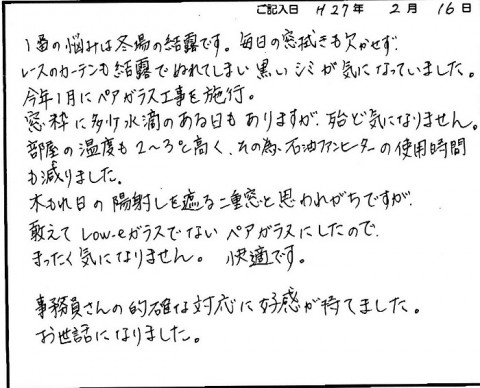 ご記入日 H27年 2月 16日
1番の悩みは冬場の結露です。毎日の窓拭きも欠かせず、
レースのカーテンも結露でぬれてしまい黒いシミが気になっていました。
今年1月にペアガラス工事を施行。
窓枠に多少水滴のある日もありますが、殆ど気になりません。
部屋の温度も2〜3℃高く、その為、石油ファンヒーターの使用時間
も減りました。
木もれ日の陽射しを遮る二重窓と思われがちですが、
敢えてLow-eガラスでないペアガラスにしたので、
まったく気になりません。 快適です。
事務員さんの的確な対応に好感が持てました。
お世話になりました。